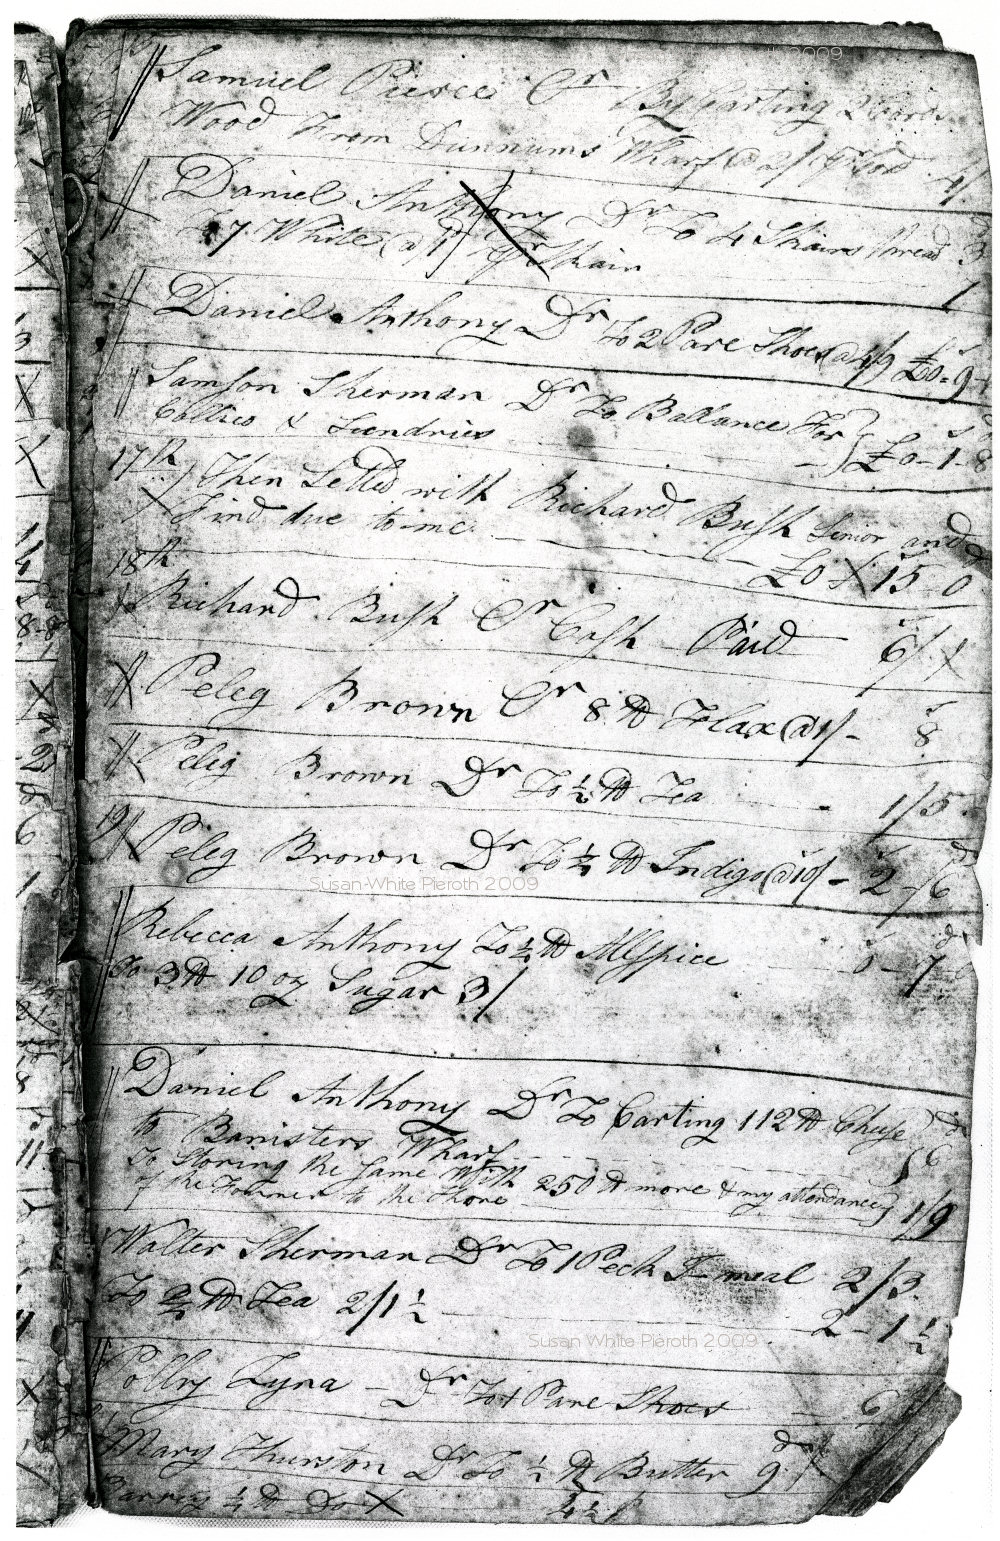 Samuel Pierce Cr By Carting 2 Cords
Wood From Dunnums Wharf @ 2/ pr Cord 4/
Daniel Anthony Dr To 4 Skains thread 3
White @ 1 pr Skain 1
Daniel Anthony Dr To 2 Pare Shoes @ 4/9 £0-9-
Samson Sherman Dr To Ballance For
Callico & Sundries £0-1-8
17th Then Setled with Richard Bush Senior and
Find due to me £0 15-0
18th
Richard Bush Cr Cash Paid 6/
Peleg Brown Cr 8 lb Flax @ 1/- 8
Peleg Brown Dr To ½ lb Tea 1/5
19
Peleg Brown Dr To ¼ lb Indigo @ 10/- 2-/6
Susan White Pieroth 2009
Rebecca Anthony To ½ lb Allspice 0-7
To 3 lb 10 oz Sugar 3/
Daniel Anthony Dr To Carting 112 lb Cheese
to Banisters Wharf 6
To Storing the Same With 250 lb more & my attendance
of the Former to the Shore 1/9
Walter Sherman Dr To 1 Peck I-meal 2/3
To lb Tea 2/1½ 2-1½
Susan White Pieroth 2009
Polley Dr To 1 Pare Shoes 6
Mary Thurston Dr To ½ lb Butter 9
¼ lb Do 4½